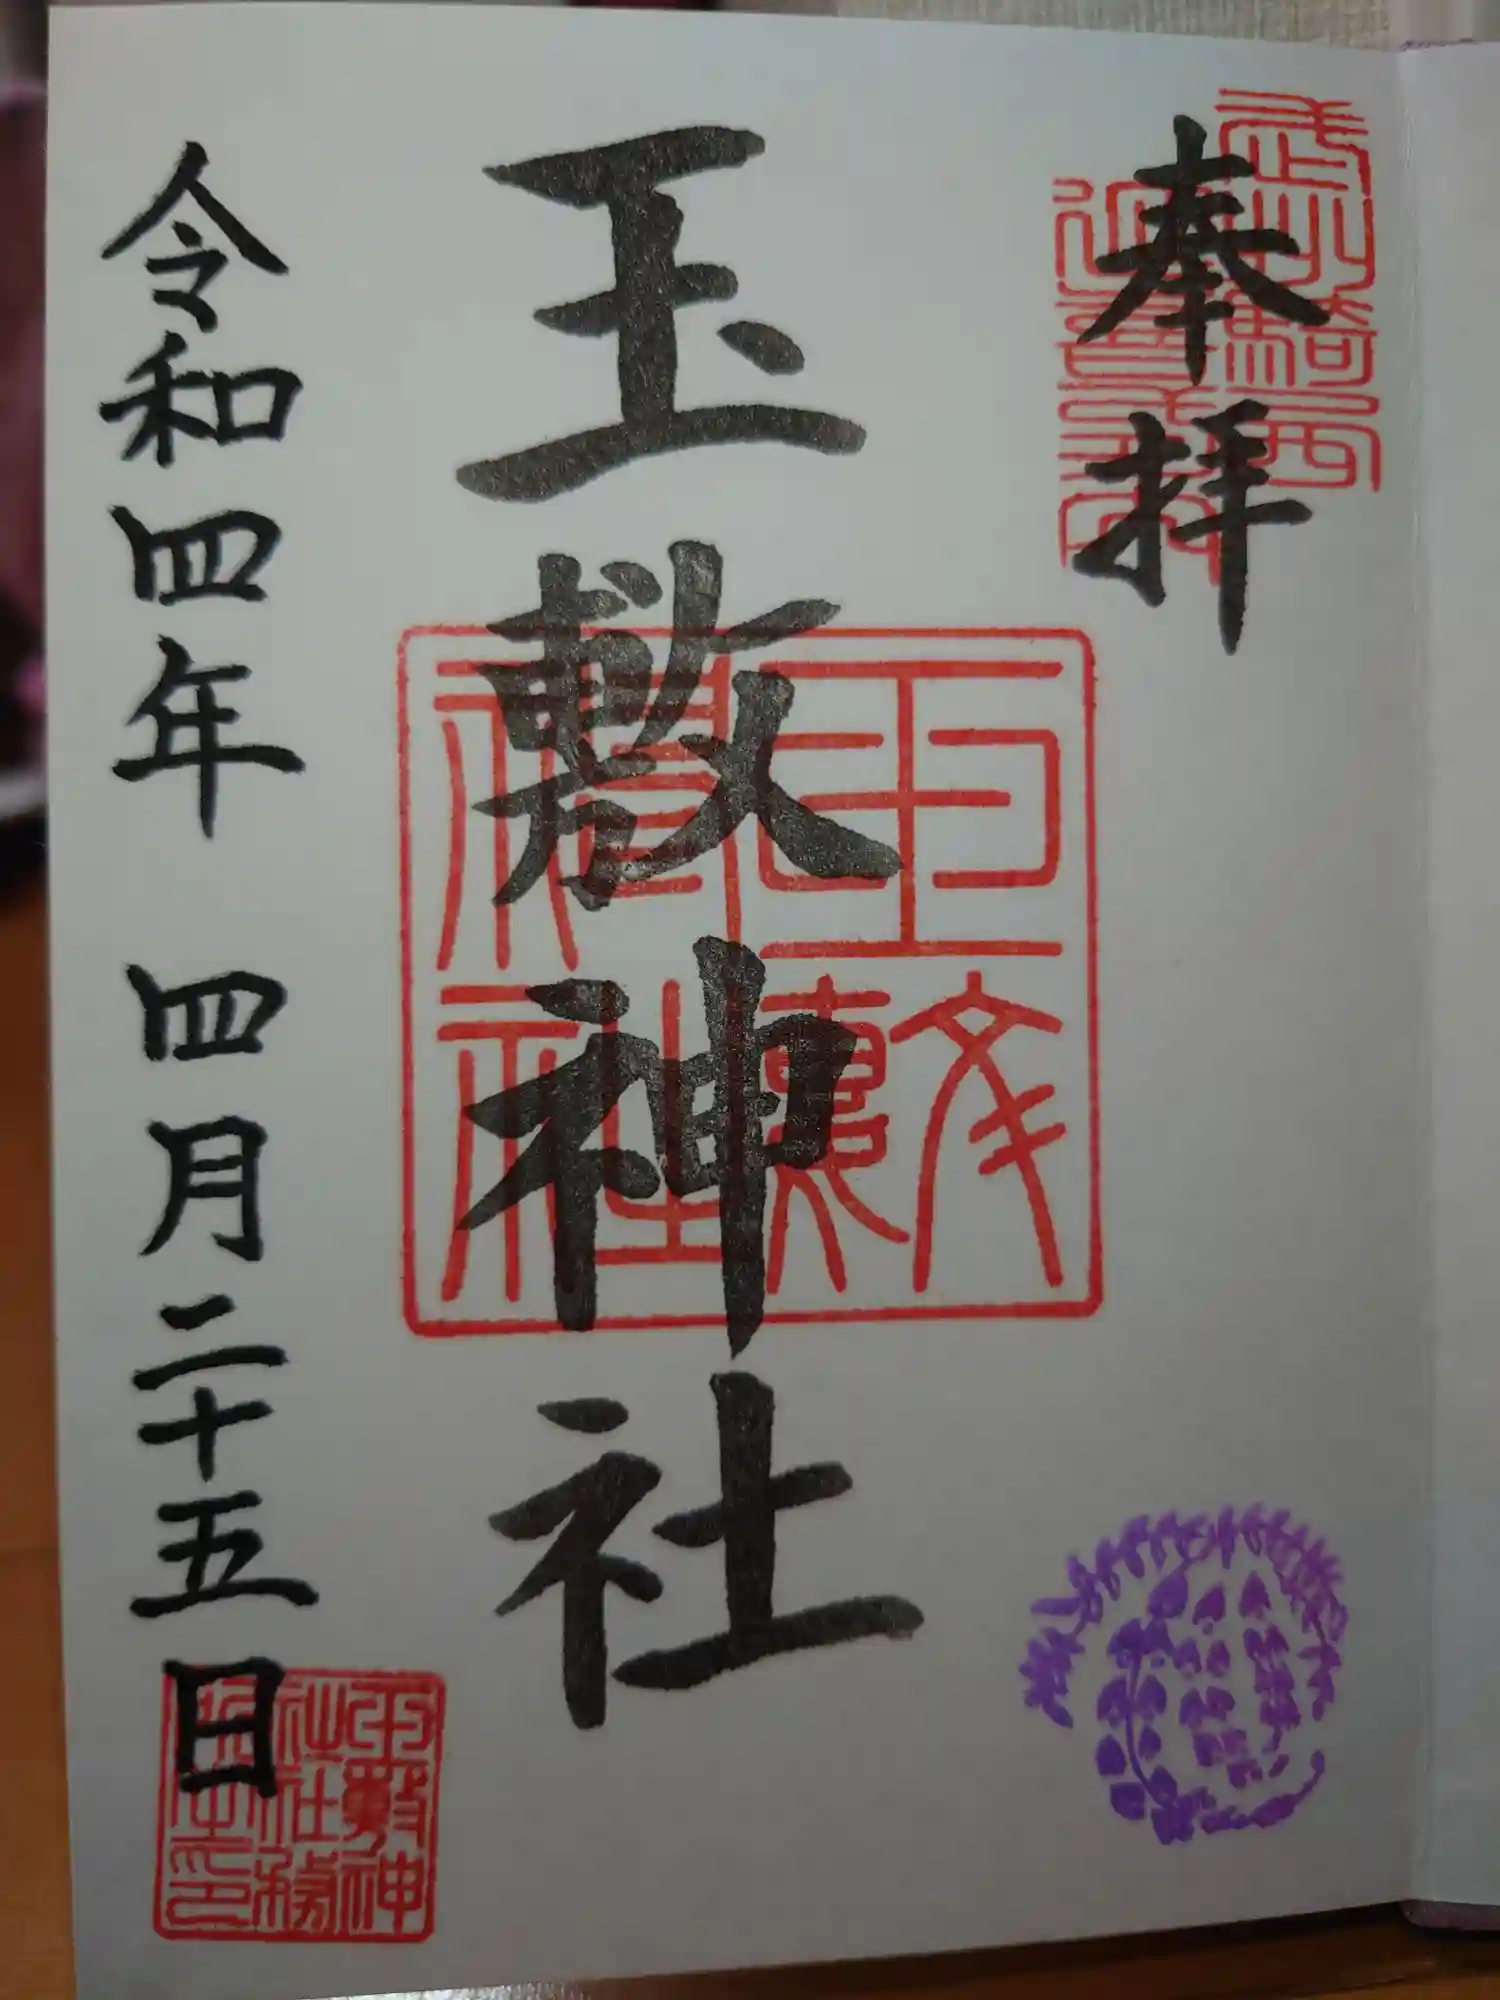 奉拝
玉敷神社
令和四年 四月二十五日
玉敷神社
玉敷神社社務所之印